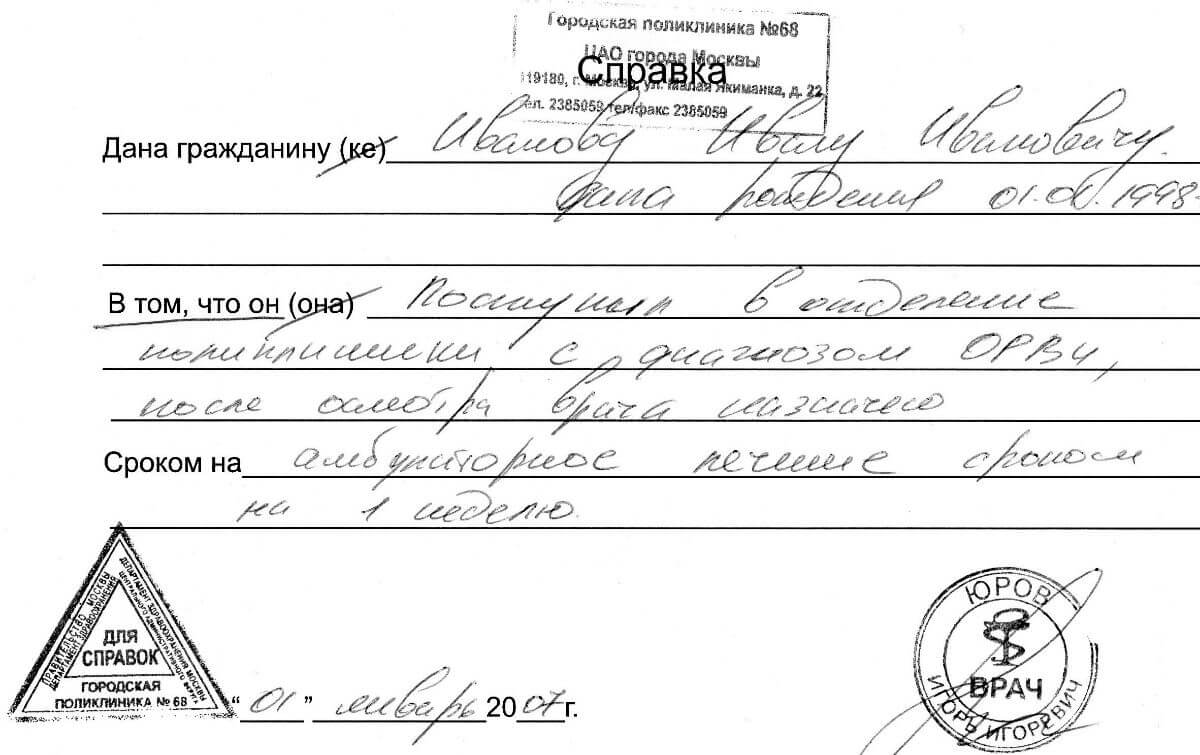 Городская поликлиника №68
ЦАО города Москвы
Справка
119180, г. Москва, ул. Малая Якиманка, д. 22
тел. 2385059 тел/факс 2385059
Дана гражданину (ке) Иванову Ивану Ивановичу.
дата рождения 01.01.1998
В том, что он (она) Поступил в отделение
поликлиники с диагнозом ОРВИ,
после осмотра врача назначено
Сроком на амбулаторное лечение сроком
на 1 неделю.
ПРАВИТЕЛЬСТВО МОСКВЫ
ДЕПАРТАМЕНТ ЗДРАВООХРАНЕНИЯ
ДЕПАРТАМЕНТ ЗДРАВООХРАНЕНИЯ МОСКВЫ
ЦЕНТРАЛЬНОГО АДМИНИСТРАТИВНОГО ОКРУГА
ДЛЯ
СПРАВОК
ГОРОДСКАЯ
ПОЛИКЛИНИКА № 68
"01" январь 2007г.
ЮРОВ
ВРАЧ
ИГОРЬ ИГОРЕВИЧ